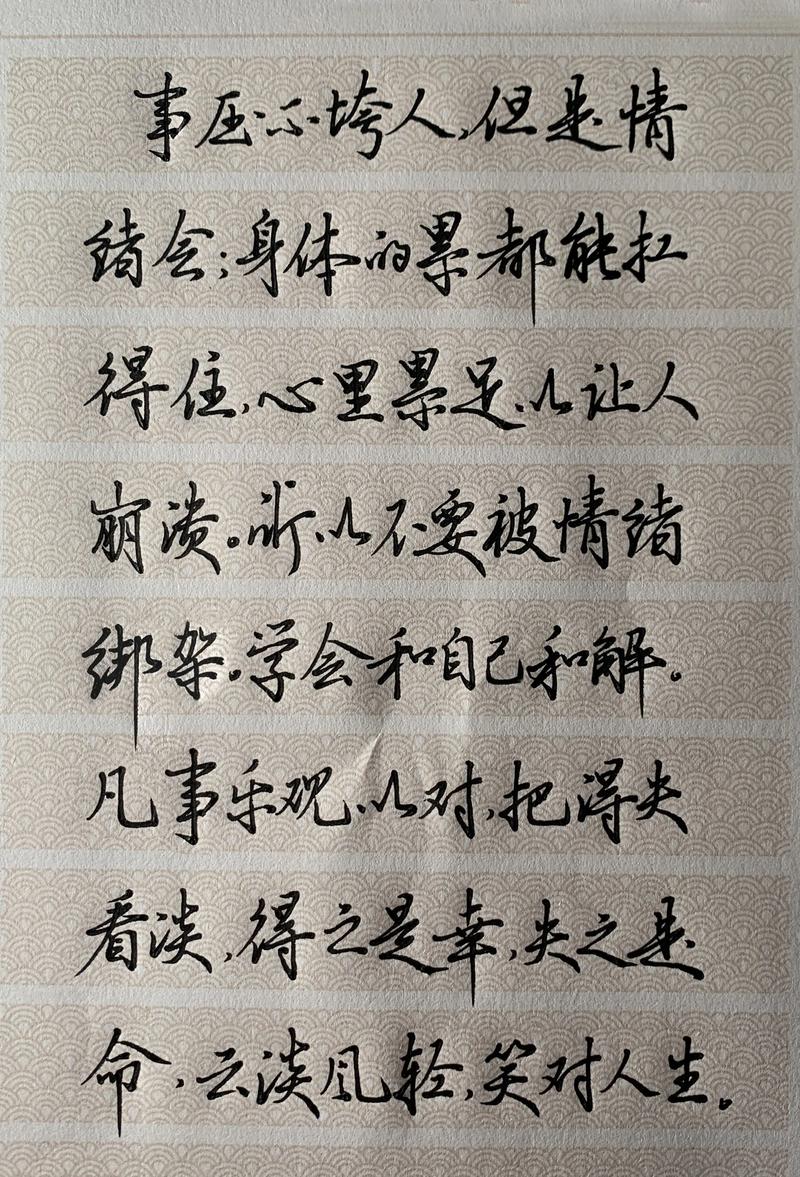 事压不垮人，但是情
绪会；身体的累都能扛
得住，心里累足以让人
崩溃。所以不要被情绪
绑架。学会和自己和解。
凡事乐观以对，把得失
看淡，得之是幸，失之是
命，云淡风轻，笑对人生。